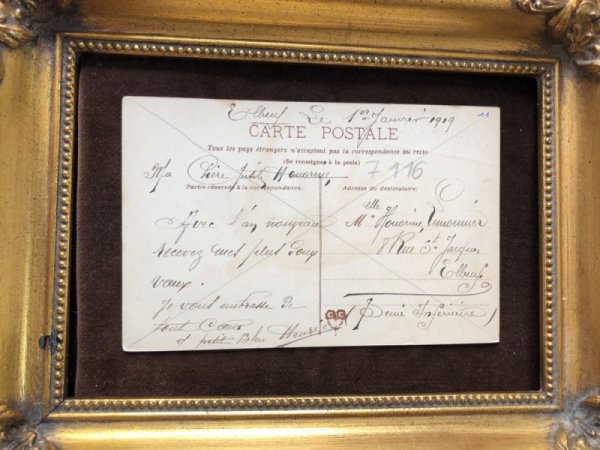 Elbeuf Le 1er Janvier 1919
11
CARTE POSTALE
Tous les pays étrangers n'acceptent pas la correspondance au recto
(Se renseigner à la poste)
7116
Ma Chère Petite Honorine
Partie réservée à la correspondance.
Adresse du destinataire.
Avec l'an nouveau
recevez mes plus doux
vœux.
Je vous embrasse de
tout Cœur
et petit Bleu Henri
Melle Honorine Lemonnier
8 Rue St Jacques
Elbeuf
(Seine Inférieure)